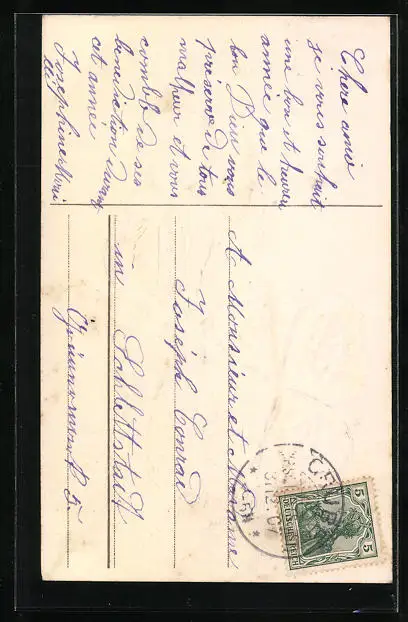 Chère amie
je vous souhait
une bon et heureu
année que le
bon Dieu vous
préserve de tous
malheur et vous
comble de ses
benediction durant
cet année
Josephine
A Monsieur et Madame
Joseph Conrad
in Schlettstadt
5
5
DEUTSCHES REICH